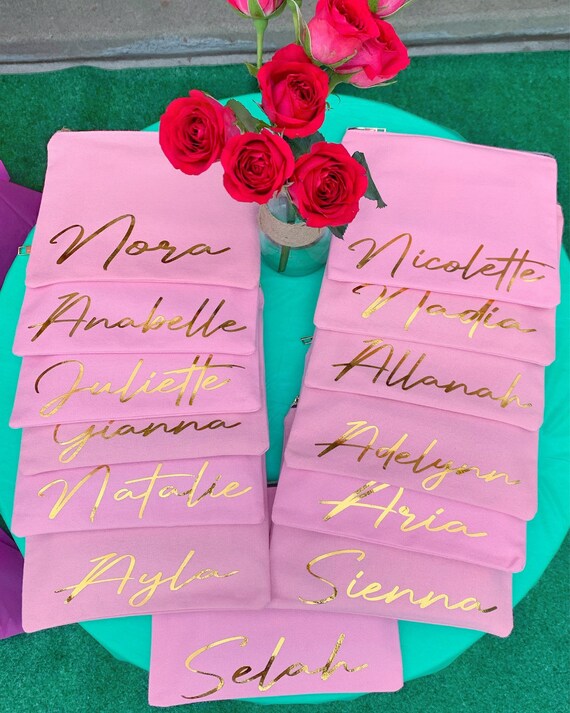 Nora
Anabelle
Juliette
Gianna
Natalie
Ayla
Nicolette
Nadia
Allanah
Adelynn
Aria
Sienna
Selah